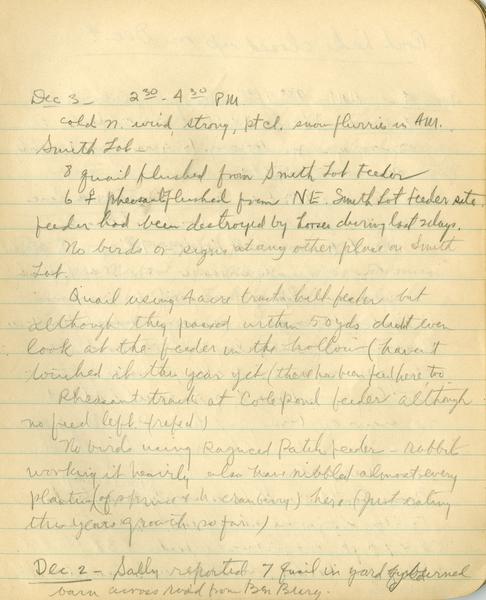 Dec 3 - 2 30 - 4 30 PM
cold n. wind, strong, pt cl. snow flurries in AM.
Smith Lot
8 quail flushed from Smith Lot Feeder
6 ♀ pheasant flushed from NE. Smith Lot Feeder site.
feeder had been destroyed by horses during last 2 days.
No birds or signs at any other place on Smith
Lot.
Quail using 4 acre tract hill feeder but
although they passed within 50 yds didn't even
look at the feeder in the hollow (haven't
touched it this year yet (there has been feed here, too
Pheasant track at Cole pond feeder although
no feed left. (refed)
No birds using Ragweed Patch feeder - rabbit
working it heavily also have nibbled almost every
planting (of spruce & h. cranberry) here (just eating
this years growth so far.)
Dec. 2 - Sally reported 7 quail in yard by burned
barn across road from Ben Burg.